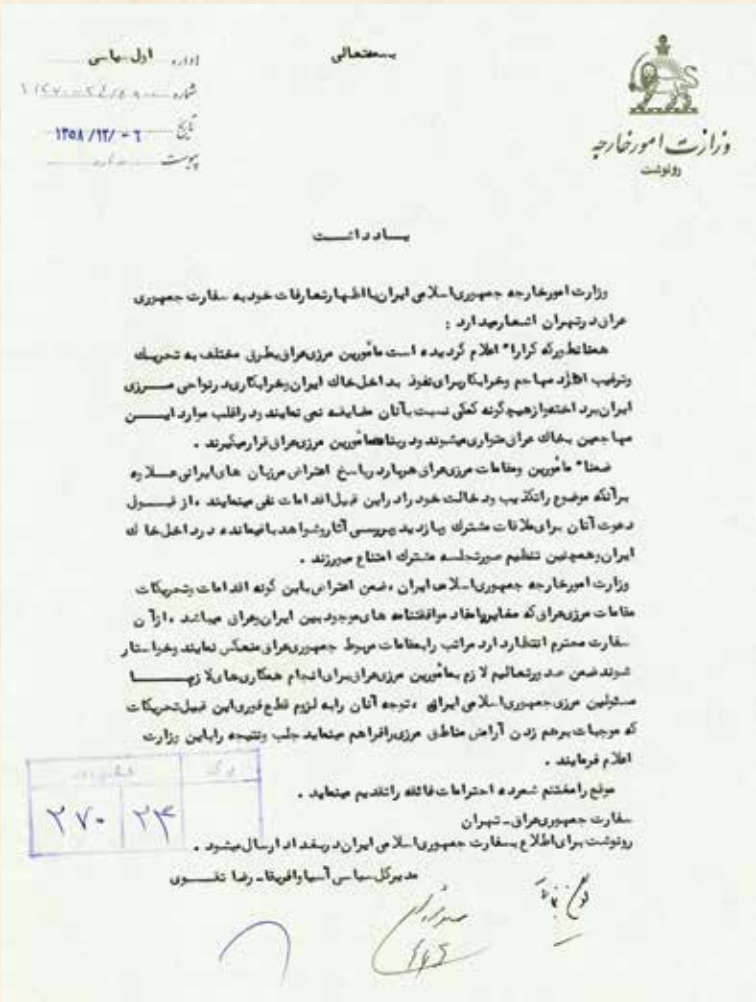 بسمه‌تعالی
وزارت امور خارجه
رونوشت
اداره اول سیاسی
شماره
تاریخ ۱۳۵۸/۱۲/-۶
پیوست ندارد
یادداشت
وزارت امورخارجه جمهوری‌اسلامی ایران‌بااظهارتعارفات خودبه سفارت جمهوری
عراق‌درتهران اشعارمیدارد :
همانطورکه کرارا" اعلام گردیده است مأمورین مرزی‌عراق‌بطرق مختلف به تحریك
وترغیب افراد مهاجم وخرابکاربرای‌نفوذ بداخل‌خاك ایران‌وخرابکاری‌درنواحی مرزی
ایران‌پرداخته‌وازهیچگونه کمکی نسبت‌بآنان مضایقه نمی نمایند ودراغلب موارد ایـن
مهاجمین بخاك عراق‌متواری‌میشوند ودرپناه‌مأمورین مرزی‌عراق‌قرارمیگیرند .
ضمنا" مأمورین ومقامات مرزی‌عراق هربارد‌رپاسخ اعتراض‌مرزبان های‌ایرانی عـلاوه
برآنکه موضوع راتکذیب ودخالت خودرادراین قبیل‌اقدامات نفی مینمایند ،از قبـول
دعوت آنان برای‌ملاقات مشترك وبازدید وبررسی آثاروشواهدباقیمانده درداخل‌خاك
ایران‌وهمچنین تنظیم صورتجلسه مشترك امتناع میورزند .
وزارت امورخارجه جمهوری‌اسلامی ایران ،ضمن اعتراض‌باین گونه اقدامات وتحریکات
مقامات مرزی‌عراق‌که مغایربامفاد موافقتنامه های‌موجودبین ایران‌وعراق میباشد ،ازآن
سفارت محترم انتظاردارد مراتب رابمقامات مربوط جمهوری‌عراق‌منعکس نمایند وخواستار
شوندضمن صدورتعالیم لازم بمأمورین مرزی‌عراق‌برای‌انجام همکاری‌های‌لازم‌بـا
مسئولین مرزی‌جمهوری‌اسلامی ایران ،توجه آنان رابه لزوم قطع‌فوری‌این قبیل‌تحریکات
که موجبات برهم زدن آرامش مناطق مرزی‌رافراهم مینماید جلب ونتیجه رابا‌ین وزارت
اعلام فرمایند .
موقع رامغتنم شمرده احترامات‌فائقه راتقدیم مینماید .
سفارت جمهوری‌عراق-تهران
رونوشت برای‌اطلاع بسفارت جمهوری‌اسلامی ایران‌دربغداد ارسال‌میشود .
مدیرکل‌سیاسی آسیاوافریقا-رضا تقـوی
۲۴
۲۷۰